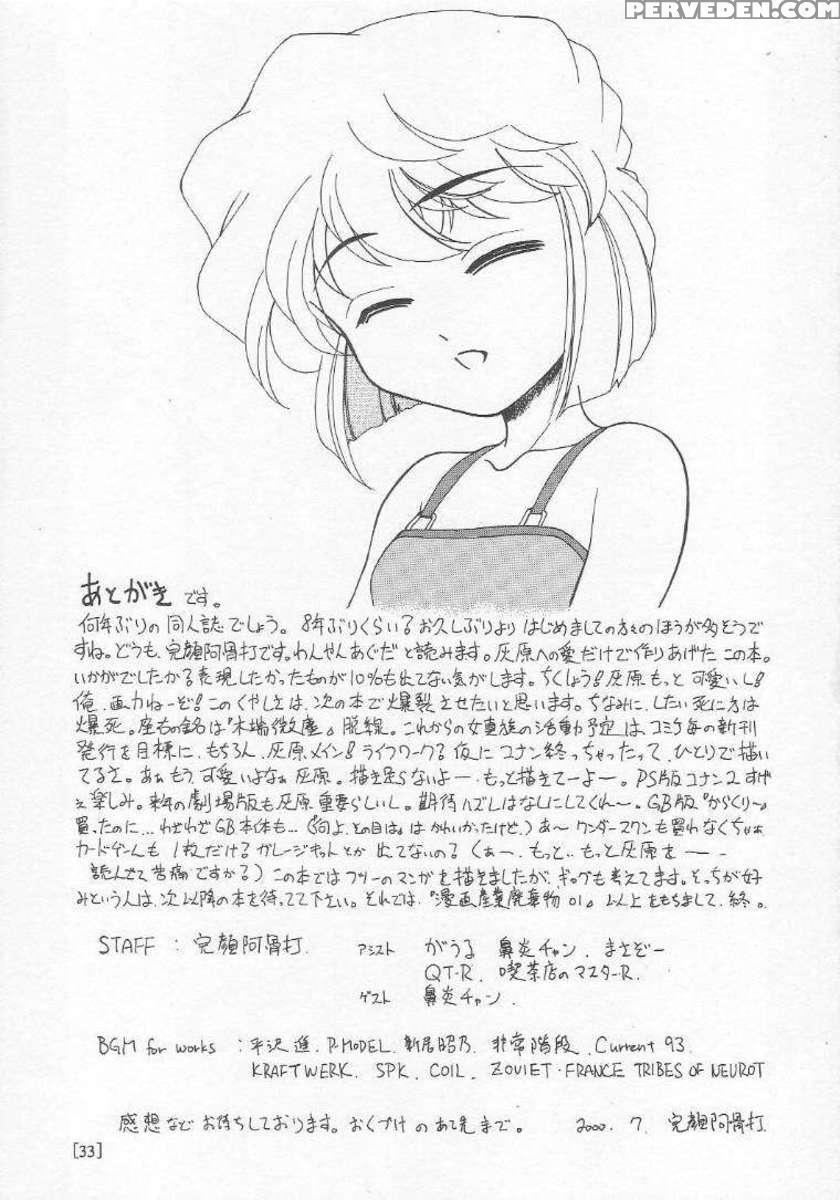 PERVEDEN.COM
あとがき です。
何年ぶりの同人誌でしょう。8年ぶりくらい? お久しぶりより はじめましての方々のほうが多そうで
すね。どうも、完顔阿骨打です。わんやんあぐだと読みます。灰原への愛だけで作りあげた この本。
いかがでしたか? 表現したかったものが10%も出てない気がします。ちくしょう! 灰原もっと可愛いし!
俺、画力ねーぞ! このくやしさは、次の本で爆裂させたいと思います。ちなみに、したい死に方は
爆死。座右の銘は『木端微塵』脱線。これからの女直族の活動予定は コミケ毎の新刊
発行を目標に、もちろん、灰原メイン! ライフワーク? 仮にコナン終っちゃったって、ひとりで描い
てるさ。あぁもう、可愛いよなぁ灰原。描き足らないよー もっと描きてーよー。PS版コナン2 すげ
え楽しみ。来年の劇場版も灰原重要らしいし。期待ハズしはなしにしてくれ〜。GB版『からくり〜』
買ったのに… わざわざGB本体も…(『何よ、その目は』は かわいかったけど。) あ〜 ワンダースワンも買わなくちゃぁ
カードゲームも 1枚だけ? ガレージキットとか 出てないの? くぁー、もっと、もっと灰原をーー
読んでて苦痛ですか? ) この本ではフツーのマンガを描きましたが、ギャグも考えてます。そっちが好
みという人は、次以降の本を待ってて下さい。それでは、『漫画産業廃棄物01』以上をもちまして、終。
STAFF : 完顔阿骨打. アシスト がうる 鼻炎チャン. まさぞー
QT-R. 喫茶店のマスターR.
ゲスト 鼻炎チャン.
BGM for works : 平沢進. P-MODEL. 新居昭乃. 非常階段. Current 93.
KRAFTWERK. SPK. COIL. ZOVIET・FRANCE TRIBES OF NEUROT
感想など お待ちしております。おくづけ のあて先まで。 2000. 7. 完顔阿骨打.
[33]